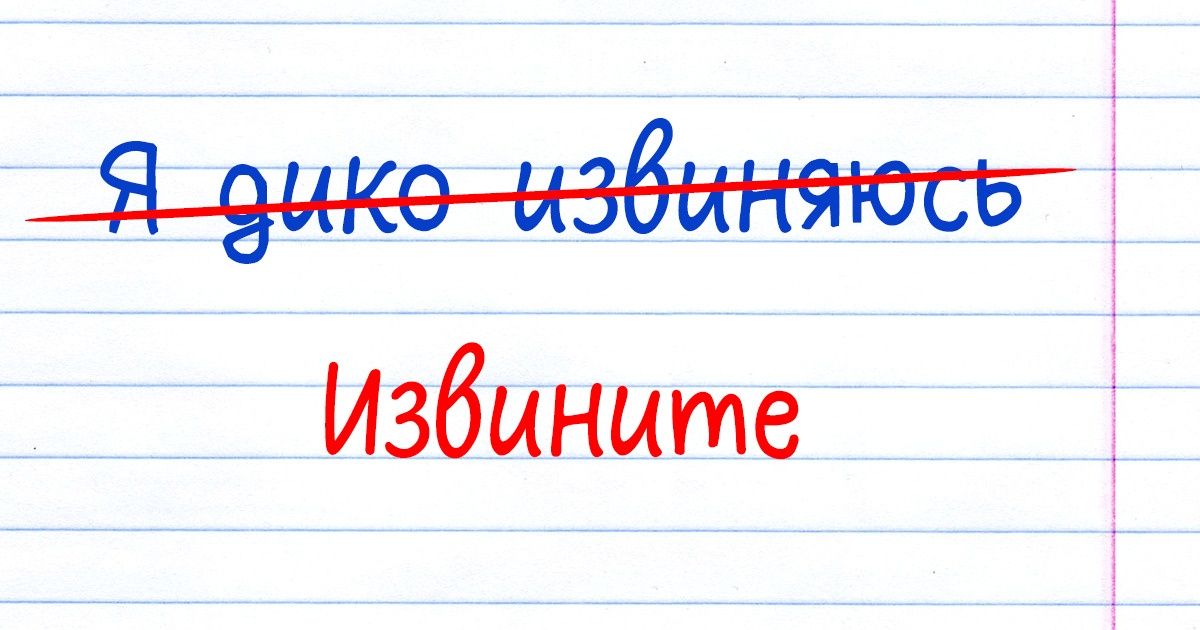 Я дико извиняюсь
Извините